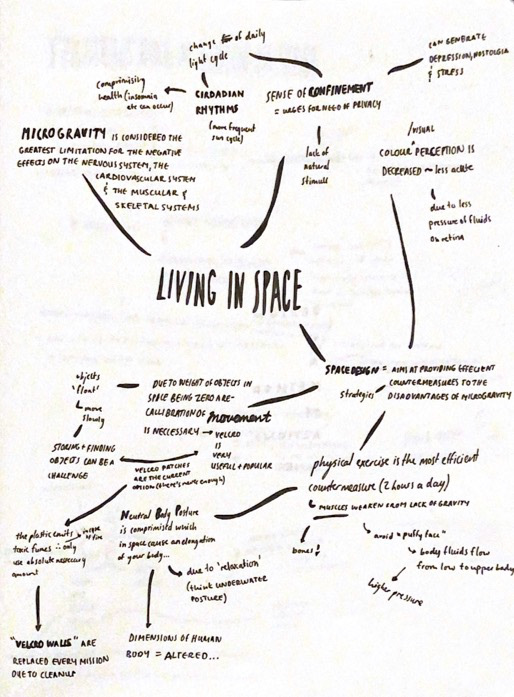 change of daily
light cycle
comprimising
health (insomnia
etc can occur)
CIRDADIAN
RHYTHMS
(more frequent
sun cycle)
SENSE OF CONFINEMENT
= URGES FOR NEED OF PRIVACY
lack of
natural
stimuli
CAN GENERATE
DEPRESSION, NOSTALGIA
& STRESS
MICROGRAVITY IS CONSIDERED THE
GREATEST LIMITATION FOR THE NEGATIVE
EFFECTS ON THE NERVOUS SYSTEM, THE
CARDIOVASCULAR SYSTEM
& THE MUSCULAR &
SKELETAL SYSTEMS
/VISUAL
COLOUR PERCEPTION IS
DECREASED ~ less acute
due to less
pressure of fluids
on retina
LIVING IN SPACE
SPACE DESIGN = AIM AT PROVIDING EFFICIENT
strategies COUNTERMEASURES TO THE
DISADVANTAGES OF MICROGRAVITY
objects
'float'
move
slowly
DUE TO WEIGHT OF OBJECTS IN
SPACE BEING ZERO ARE-
CALLIBRATION OF movement
IS NECCESSARY → VELCRO
IS
VERY
USEFUL & POPULAR
STORING & FINDING
OBJECTS CAN BE A
CHALLENGE
VELCRO PATCHES
ARE THE CURRENT
OPTION (there's never enough)
physical exercise is the most efficient
countermeasure (2 hours a day)
MUSCLES WEAKEN FROM LACK OF GRAVITY
bones!
avoid "puffy face"
body fluids flow
from low to upper body
higher pressure
Neutral Body Posture
is comprimised which
in space cause an elongation
of your body...
due to 'relaxation'
(think UNDERWATER
POSTURE)
the plastic emits in case
of fire
toxic fumes ∴ only
use absolute neccesary
amount
"VELCRO WALLS" ARE
REPLACED EVERY MISSION
DUE TO CLEANUP
DIMENSIONS OF HUMAN
BODY = ALTERED...